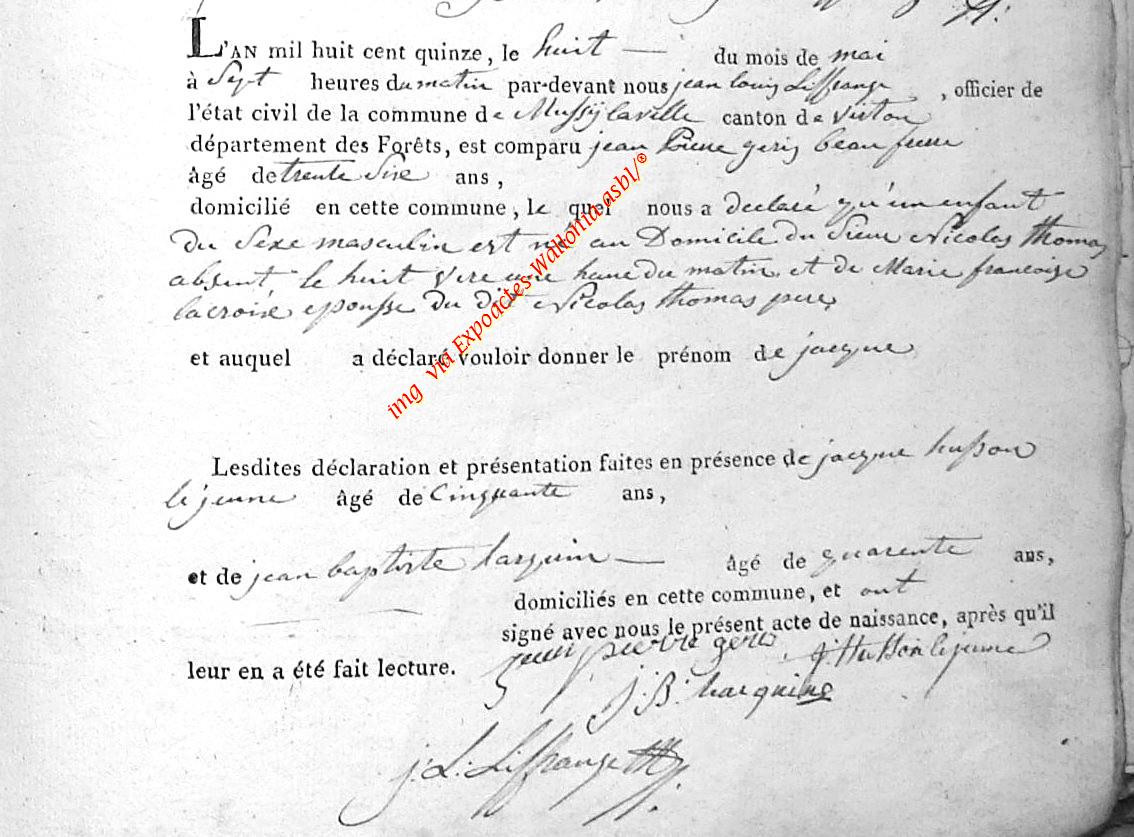 L'AN mil huit cent quinze, le huit — du mois de mai
à Sept heures du matin par-devant nous jean louis Liffrange, officier de
l'état civil de la commune de Mussÿlaville canton de virton
département des Forêts, est comparu jean Pierre geris beau frere
âgé de trente Sixe ans,
domicilié en cette commune, le quel nous a declaré qu'un enfant
du Sexe masculin est né au Domicile du Sieur Nicolas thomas
absent, le huit vere une heure du matin, et de Marie francoise
lacroix epousse du dit Nicolas thomas pere,
et auquel a déclaré vouloir donner le prénom de jacque
img via Expoactes-Wallonia-asbl/®
Lesdites déclaration et présentation faites en présence de jacque husson
le jeune âgé de Cinquante ans,
et de jean baptiste larquin — âgé de quarente ans,
domiciliés en cette commune, et ont
signé avec nous le présent acte de naissance, après qu'il
leur en a été fait lecture.
jean pierre geris j. Husson le jeune
J. B. Larquin
j. L. Liffrange